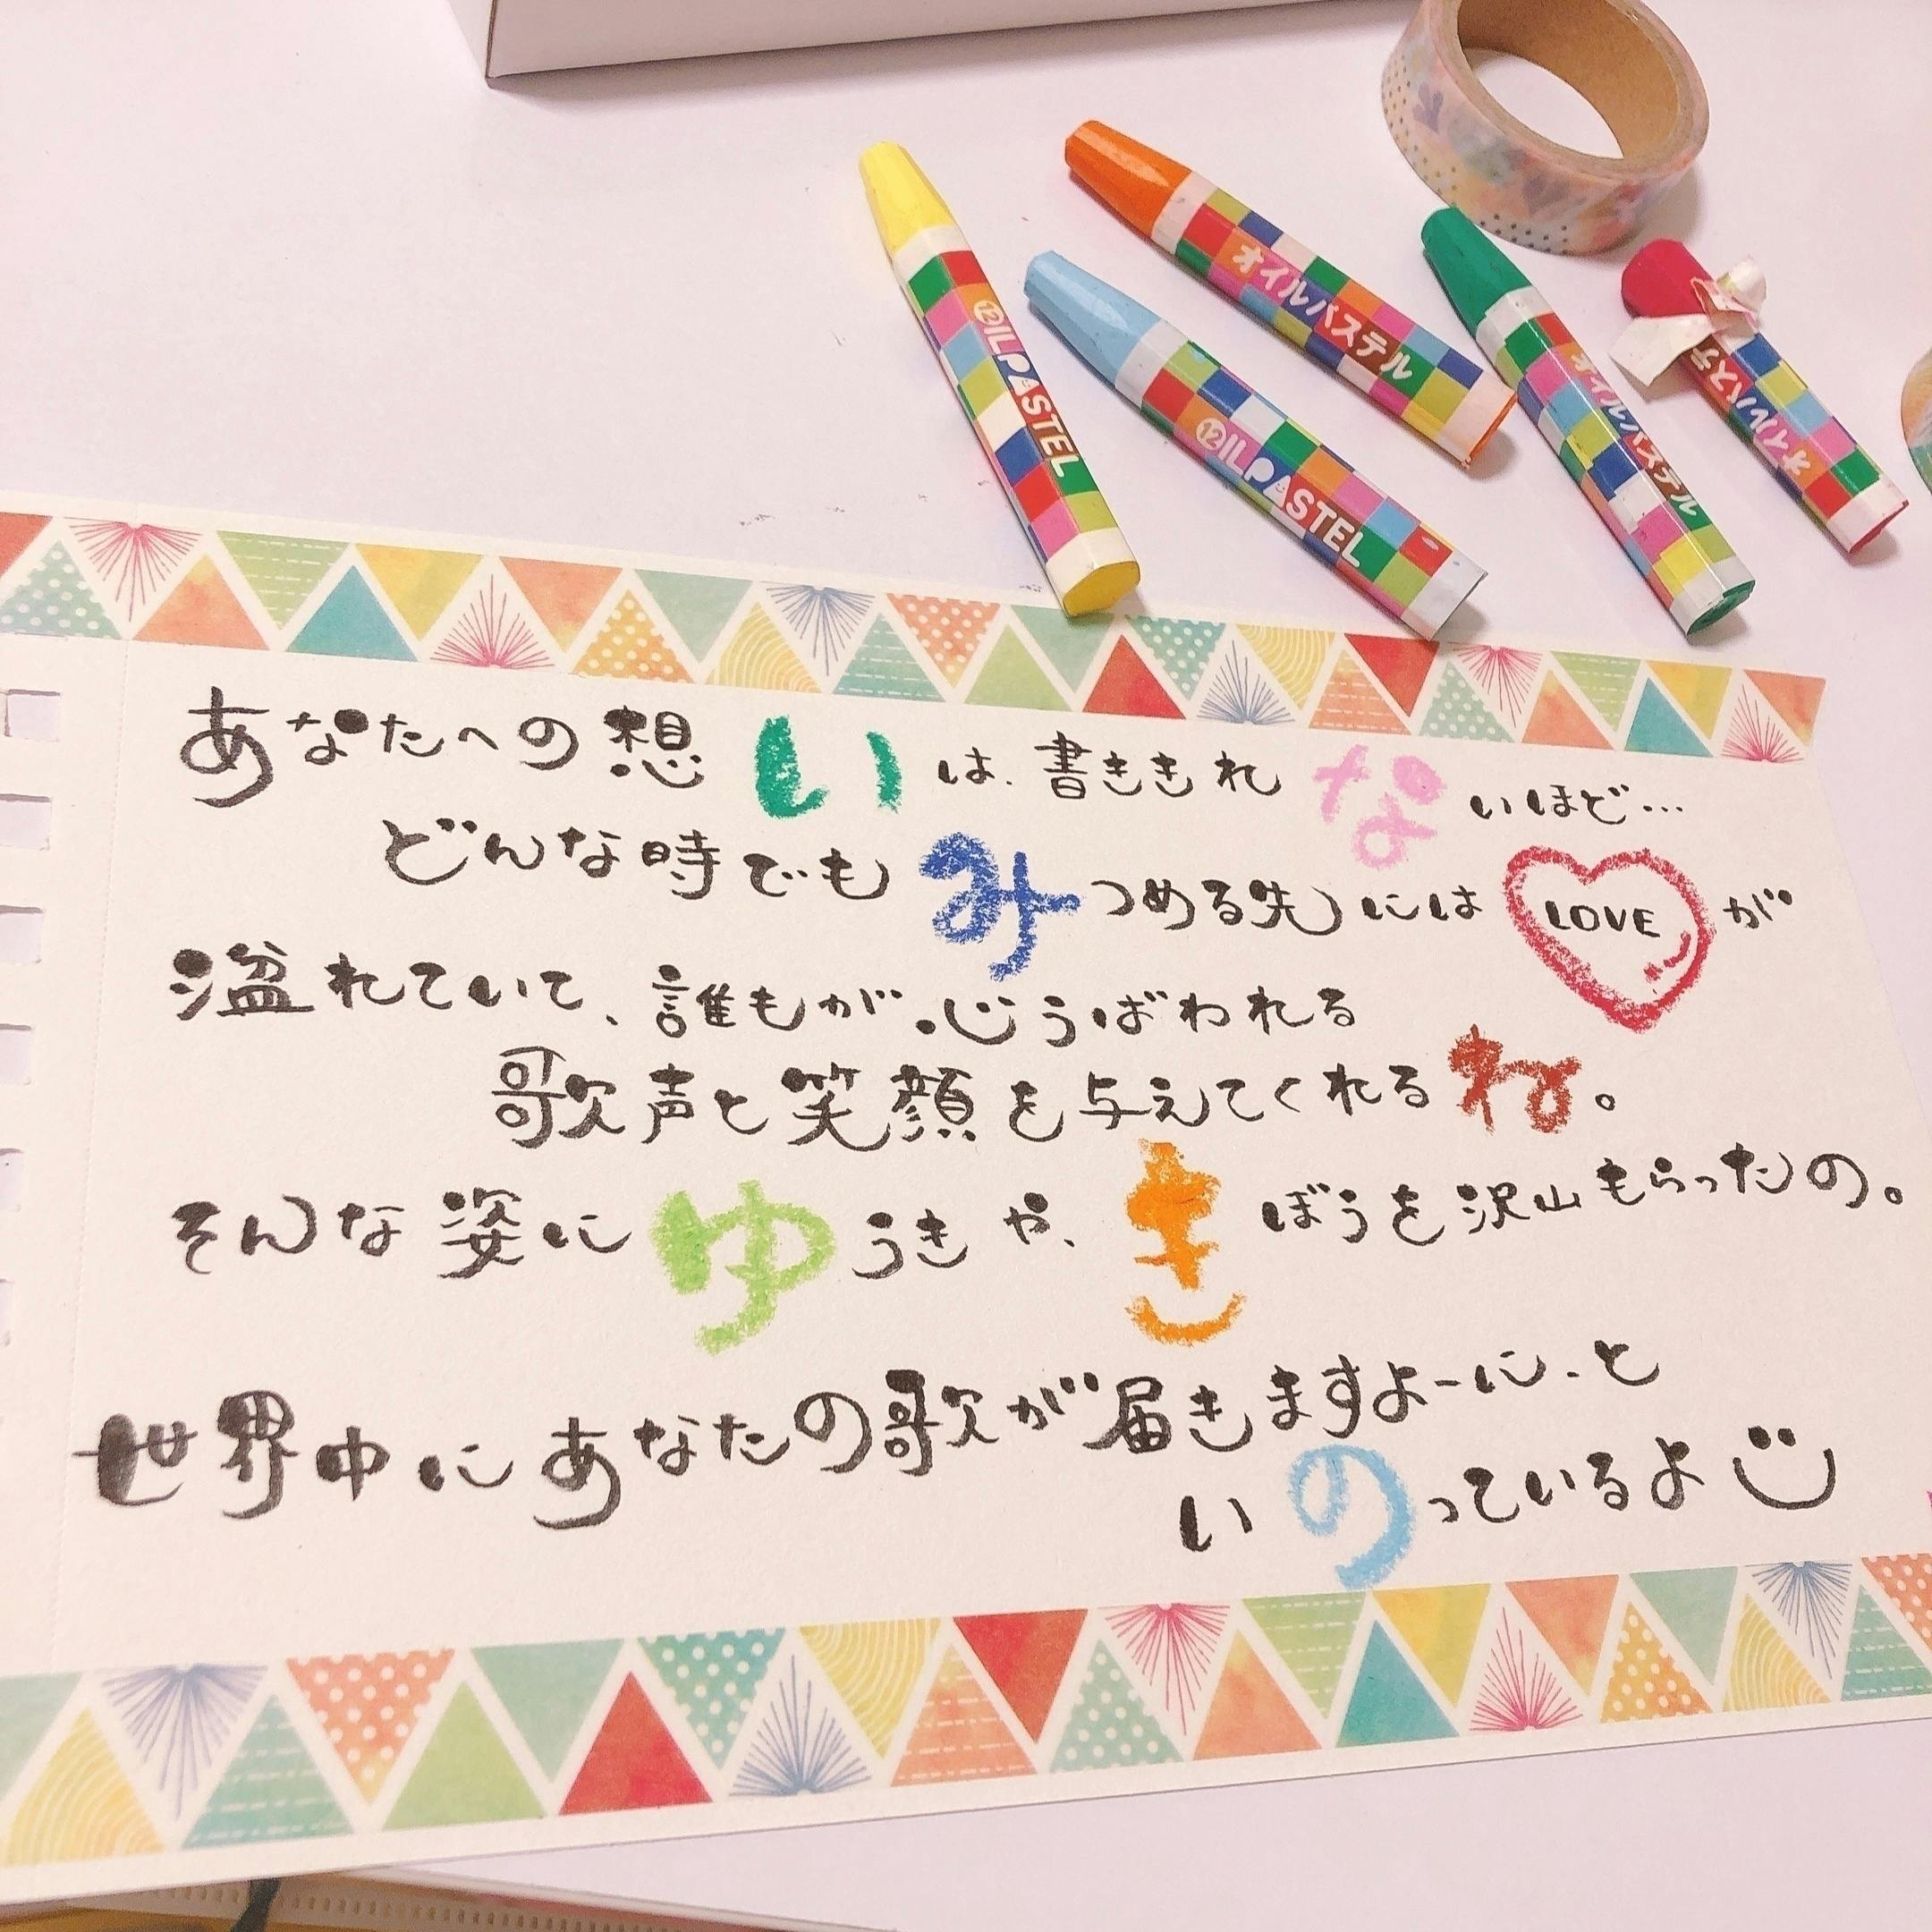 ⑫ILPASTEL
⑫ILPASTEL
オイルパステル
オイルパステル
オイルパステ
あなたへの想いは、書ききれないほど…
どんな時でもみつめる先にはLOVEが
溢れていて、誰もが心うばわれる
歌声と笑顔を与えてくれるね。
そんな姿にゆうきや、きぼうを沢山もらったの。
世界中にあなたの歌が届きますよーに、と
いのっているよ